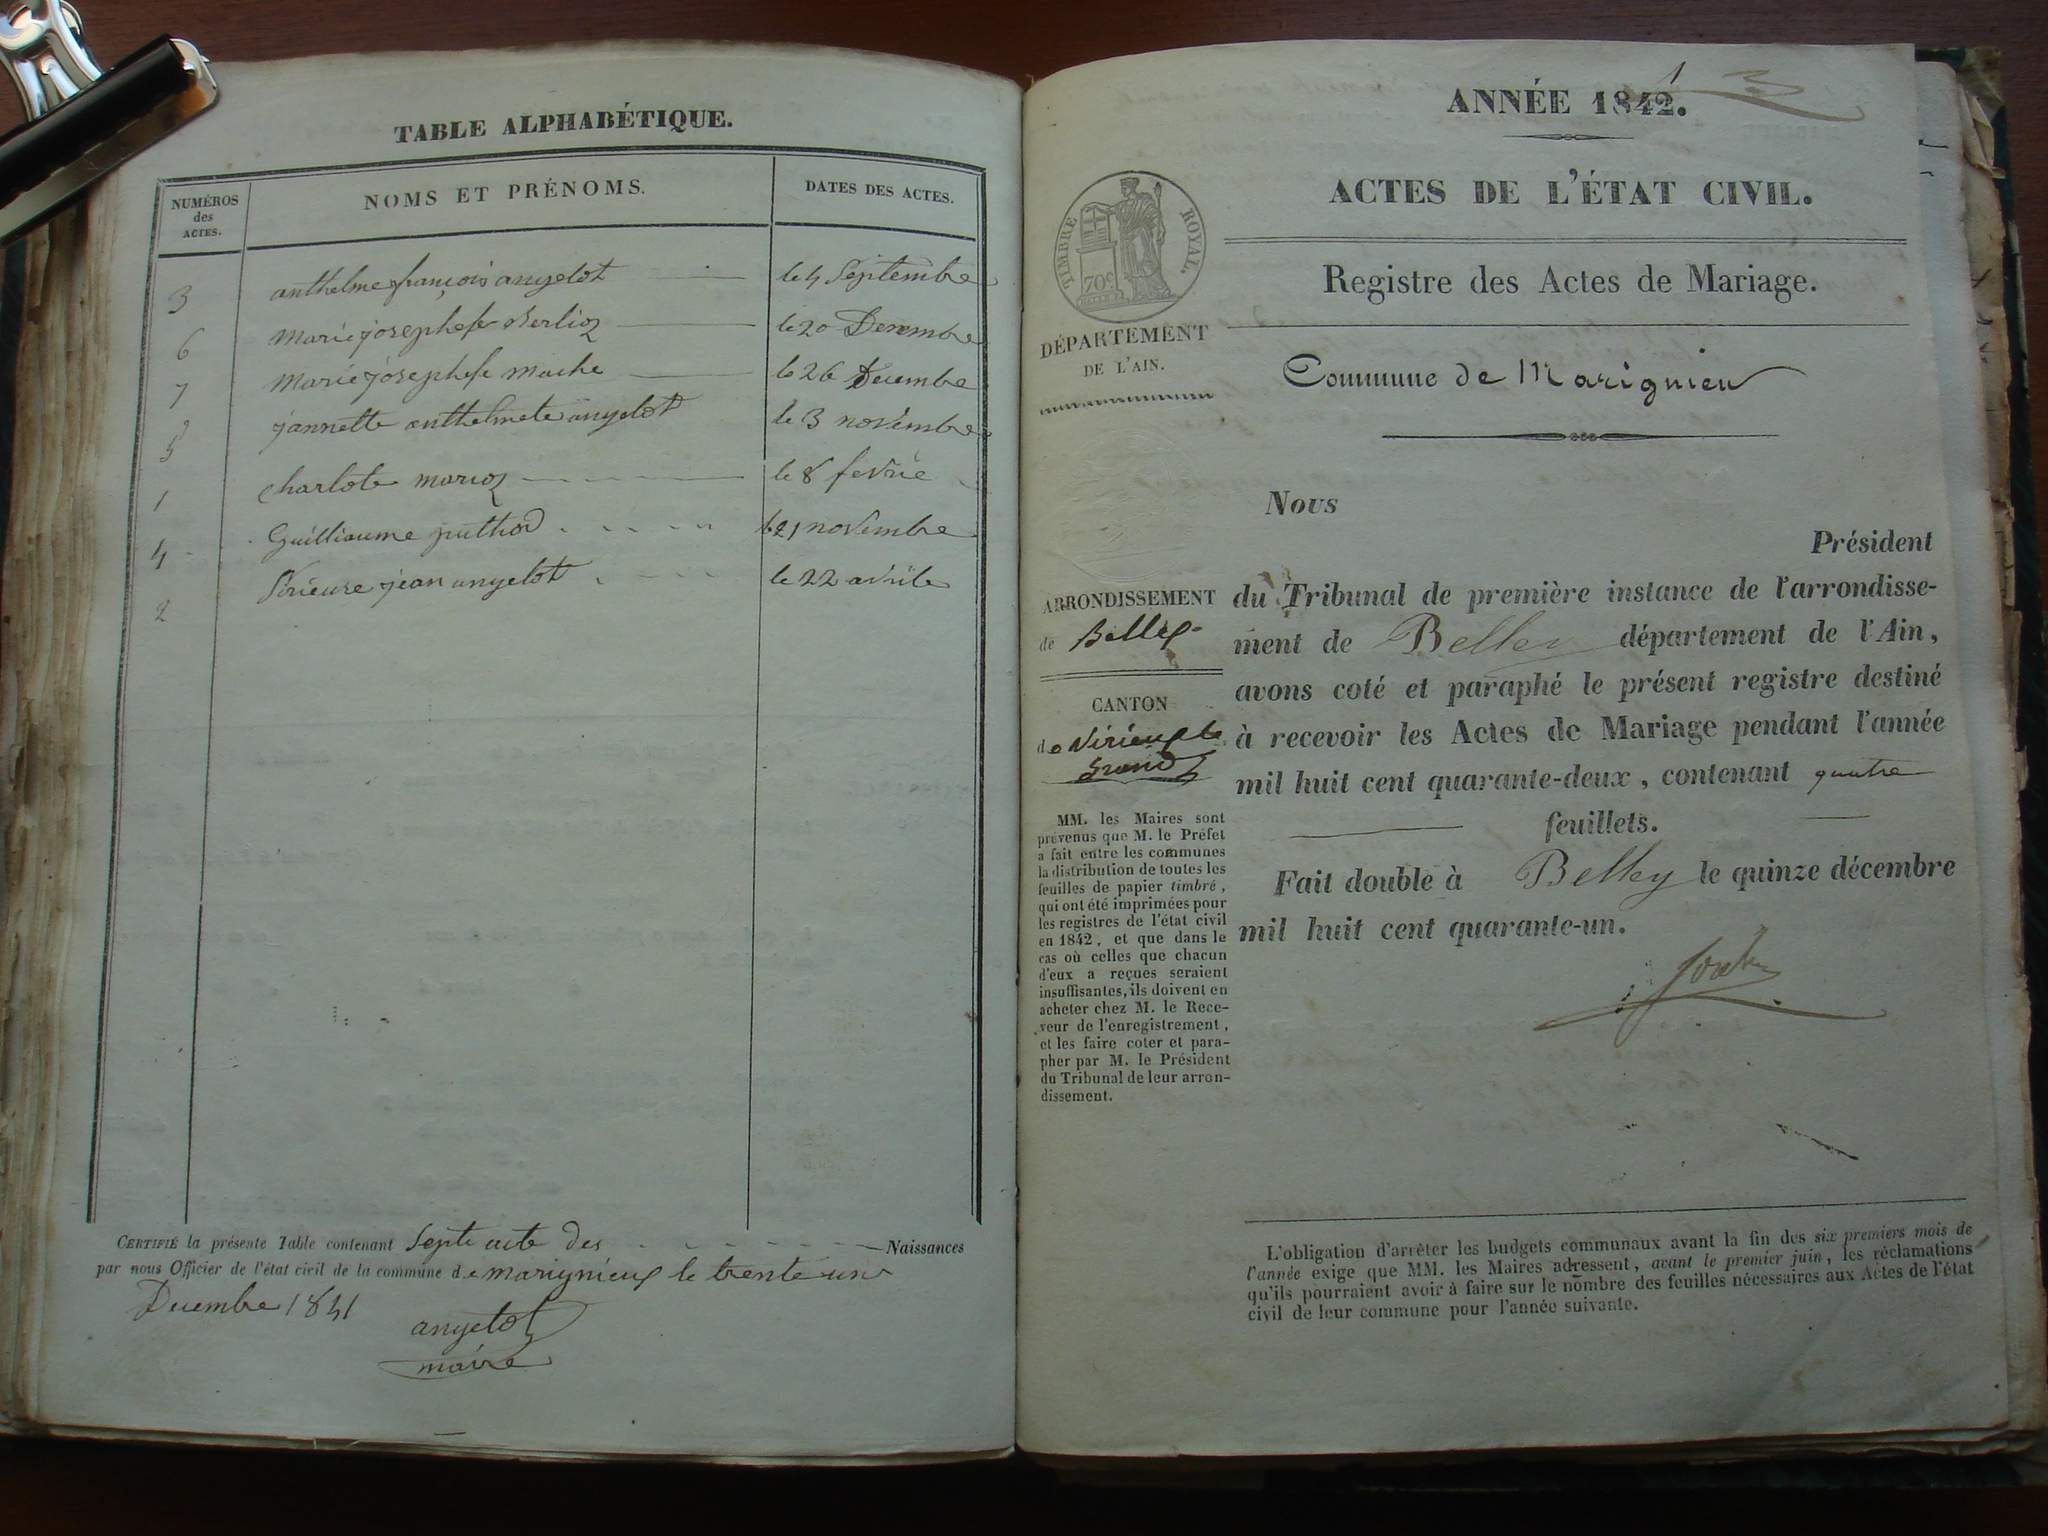 TABLE ALPHABÉTIQUE.
NUMÉROS des ACTES. NOMS ET PRÉNOMS. DATES DES ACTES.
3 anthelme françois angelot le 4 Septembre
6 Marie josephe Berlioz le 20 Decembre
7 Marie josephe Mache le 26 Decembre
5 jannette anthelmete angelot le 3 novembre
1 charlote marioz le 8 fevrie
4 Guilliaume puthod le 21 novembre
2 jean angelot le 22 avrile
CERTIFIÉ la présente Table contenant Septe acte des Naissances
par nous Officier de l'état civil de la commune de marignieux le trente un
Decembre 1841
angelot
maire
1
ANNÉE 1842.
ACTES DE L'ÉTAT CIVIL.
TIMBRE ROYAL.
70c
Registre des Actes de Mariage.
DÉPARTEMENT
DE L'AIN.
Commune de Marignieu
Nous
Président
ARRONDISSEMENT
de Belley
CANTON
de Virieu le
Grand
MM. les Maires sont
prévenus que M. le Préfet
a fait entre les communes
la distribution de toutes les
feuilles de papier timbré,
qui ont été imprimées pour
les registres de l'état civil
en 1842, et que dans le
cas où celles que chacun
d'eux a reçues seraient
insuffisantes, ils doivent en
acheter chez M. le Rece-
veur de l'enregistrement,
et les faire coter et para-
pher par M. le Président
du Tribunal de leur arron-
dissement.
du Tribunal de première instance de l'arrondisse-
ment de Belley département de l'Ain,
avons coté et paraphé le présent registre destiné
à recevoir les Actes de Mariage pendant l'année
mil huit cent quarante-deux, contenant quatre
feuillets.
Fait double à Belley le quinze décembre
mil huit cent quarante-un.
L'obligation d'arrêter les budgets communaux avant la fin des six premiers mois de
l'année exige que MM. les Maires adressent, avant le premier juin, les réclamations
qu'ils pourraient avoir à faire sur le nombre des feuilles nécessaires aux Actes de l'état
civil de leur commune pour l'année suivante.